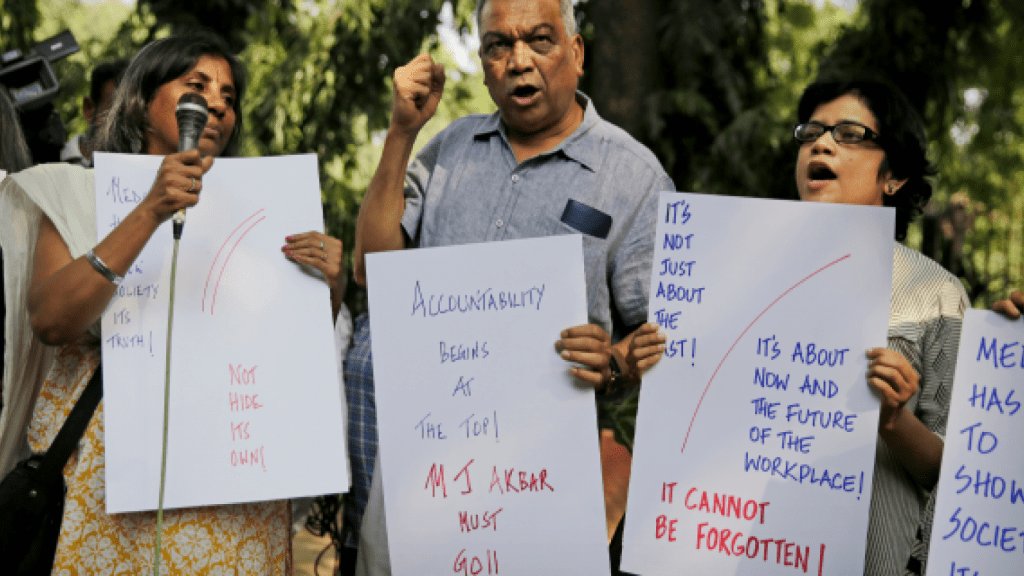 SOCIETY
ITS
TRUTH!
NOT
HIDE
ITS
OWN!
ACCOUNTABILITY
BEGINS
AT
THE TOP!
M J AKBAR
MUST
GO!!
IT'S
NOT
JUST
ABOUT
THE
IT'S ABOUT
NOW AND
THE FUTURE
OF THE
WORKPLACE!
IT CANNOT
BE FORGOTTEN!
HAS
TO
SHOW